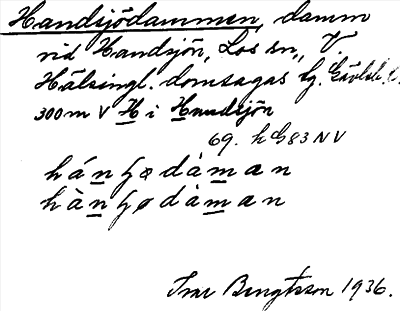 Handsjödammen, damm
vid Handsjön, Los sn, V.
Hälsingl. domsagas tg. Gävleb. l.
300 m V H i Handsjön
69. h G83 NV
hánʃødàman
hànʃødàman
Ivar Bengtsson 1936.